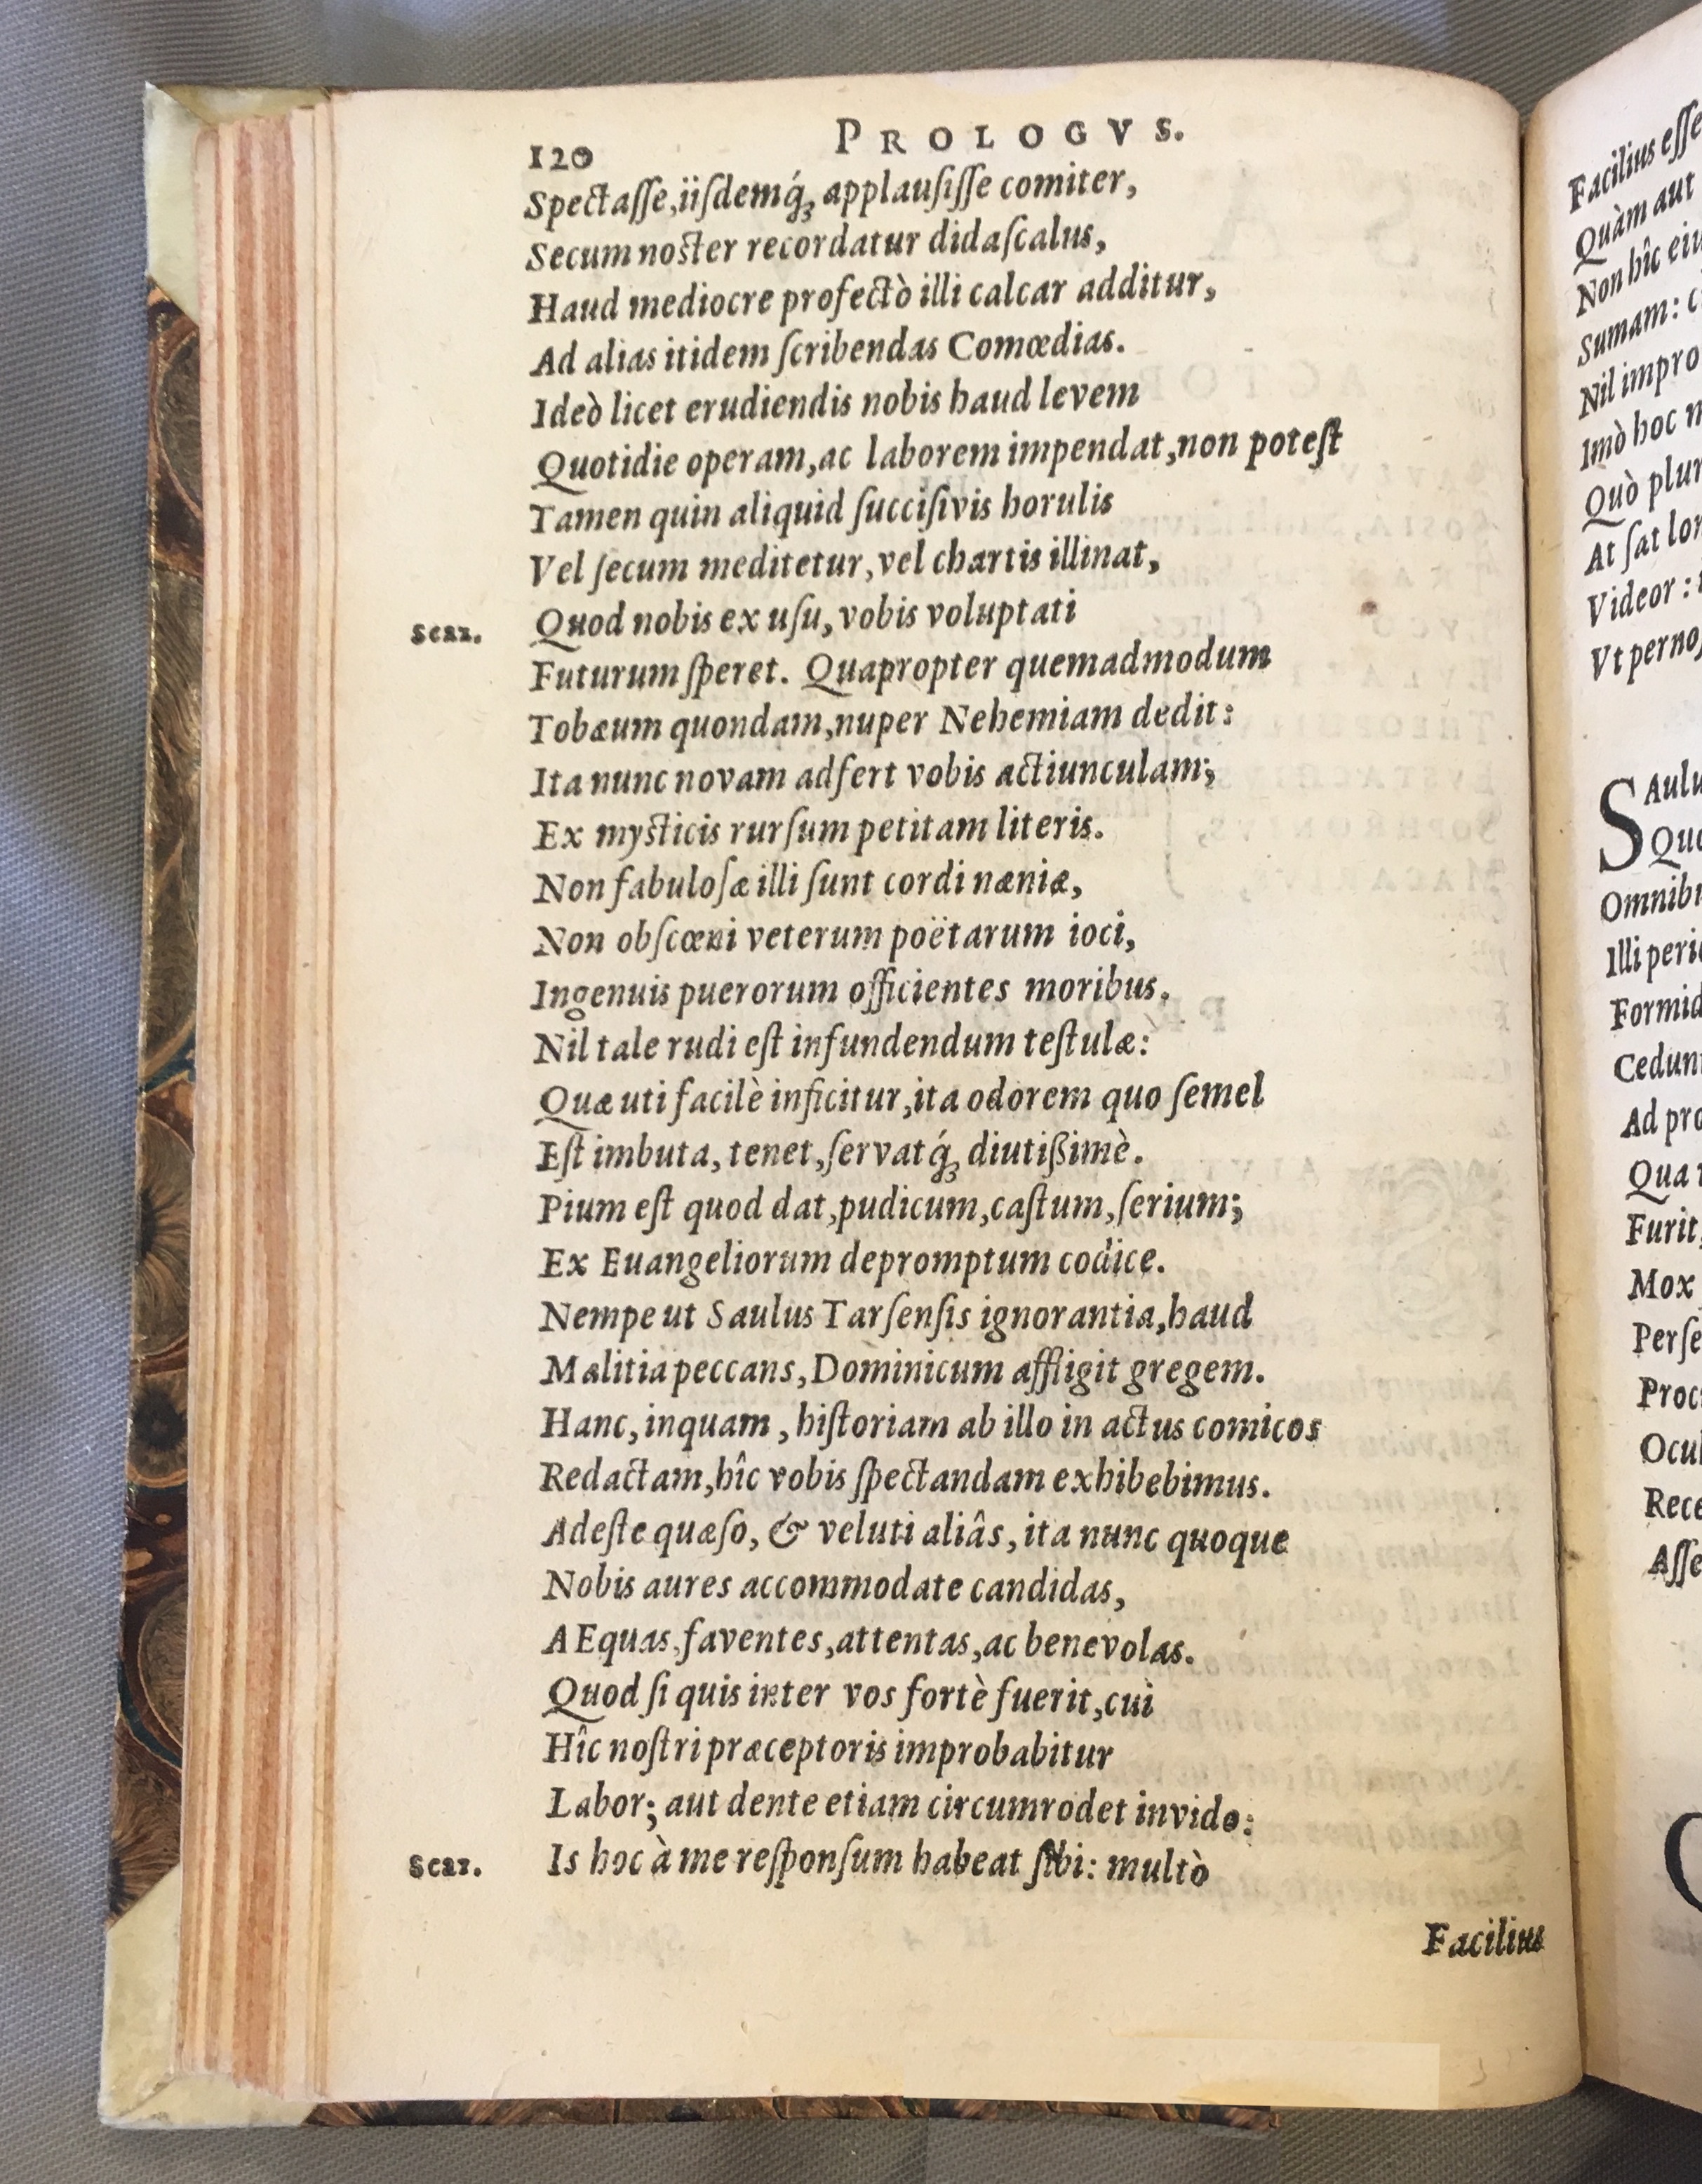 120 PROLOGVS.
Spectaſſe, iiſdemq́ꝫ applauſiſſe comiter,
Secum noſter recordatur didaſcalus,
Haud mediocre profectò illi calcar additur,
Ad alias itidem ſcribendas Comœdias.
Ideò licet erudiendis nobis haud levem
Quotidie operam, ac laborem impendat, non poteſt
Tamen quin aliquid ſucciſivis horulis
Vel ſecum meditetur, vel chartis illinat,
Scaz. Quod nobis ex uſu, vobis voluptati
Futurum ſperet. Quapropter quemadmodum
Tobæum quondam, nuper Nehemiam dedit:
Ita nunc novam adfert vobis actiunculam;
Ex myſticis rurſum petitam literis.
Non fabuloſæ illi ſunt cordi næniæ,
Non obſcœni veterum poëtarum ioci,
Ingenuis puerorum officientes moribus.
Nil tale rudi eſt infundendum teſtulæ:
Quæ uti facilè inficitur, ita odorem quo ſemel
Eſt imbuta, tenet, ſervatq́ꝫ diutißimè.
Pium eſt quod dat, pudicum, caſtum, ſerium;
Ex Euangeliorum depromptum codice.
Nempe ut Saulus Tarſenſis ignorantia, haud
Malitia peccans, Dominicum affligit gregem.
Hanc, inquam, hiſtoriam ab illo in actus comicos
Redactam, hîc vobis ſpectandam exhibebimus.
Adeſte quæſo, & veluti aliâs, ita nunc quoque
Nobis aures accommodate candidas,
AEquas, faventes, attentas, ac benevolas.
Quod ſi quis inter vos fortè fuerit, cui
Hîc noſtri præceptoris improbabitur
Labor; aut dente etiam circumrodet invido:
Scaz. Is hoc à me reſponſum habeat ſibi: multò
Facilius
Facilius eſſe
Quàm aut
Non hîc
Sumam:
Nil
Imò hoc
Quò
At ſat
Videor:
Vt
SAulu
Omnib
Illi
Formid
Cedun
Ad
Qua
Furit,
Mox
Perſe
Proc
Ocul
Rece
Aſſe